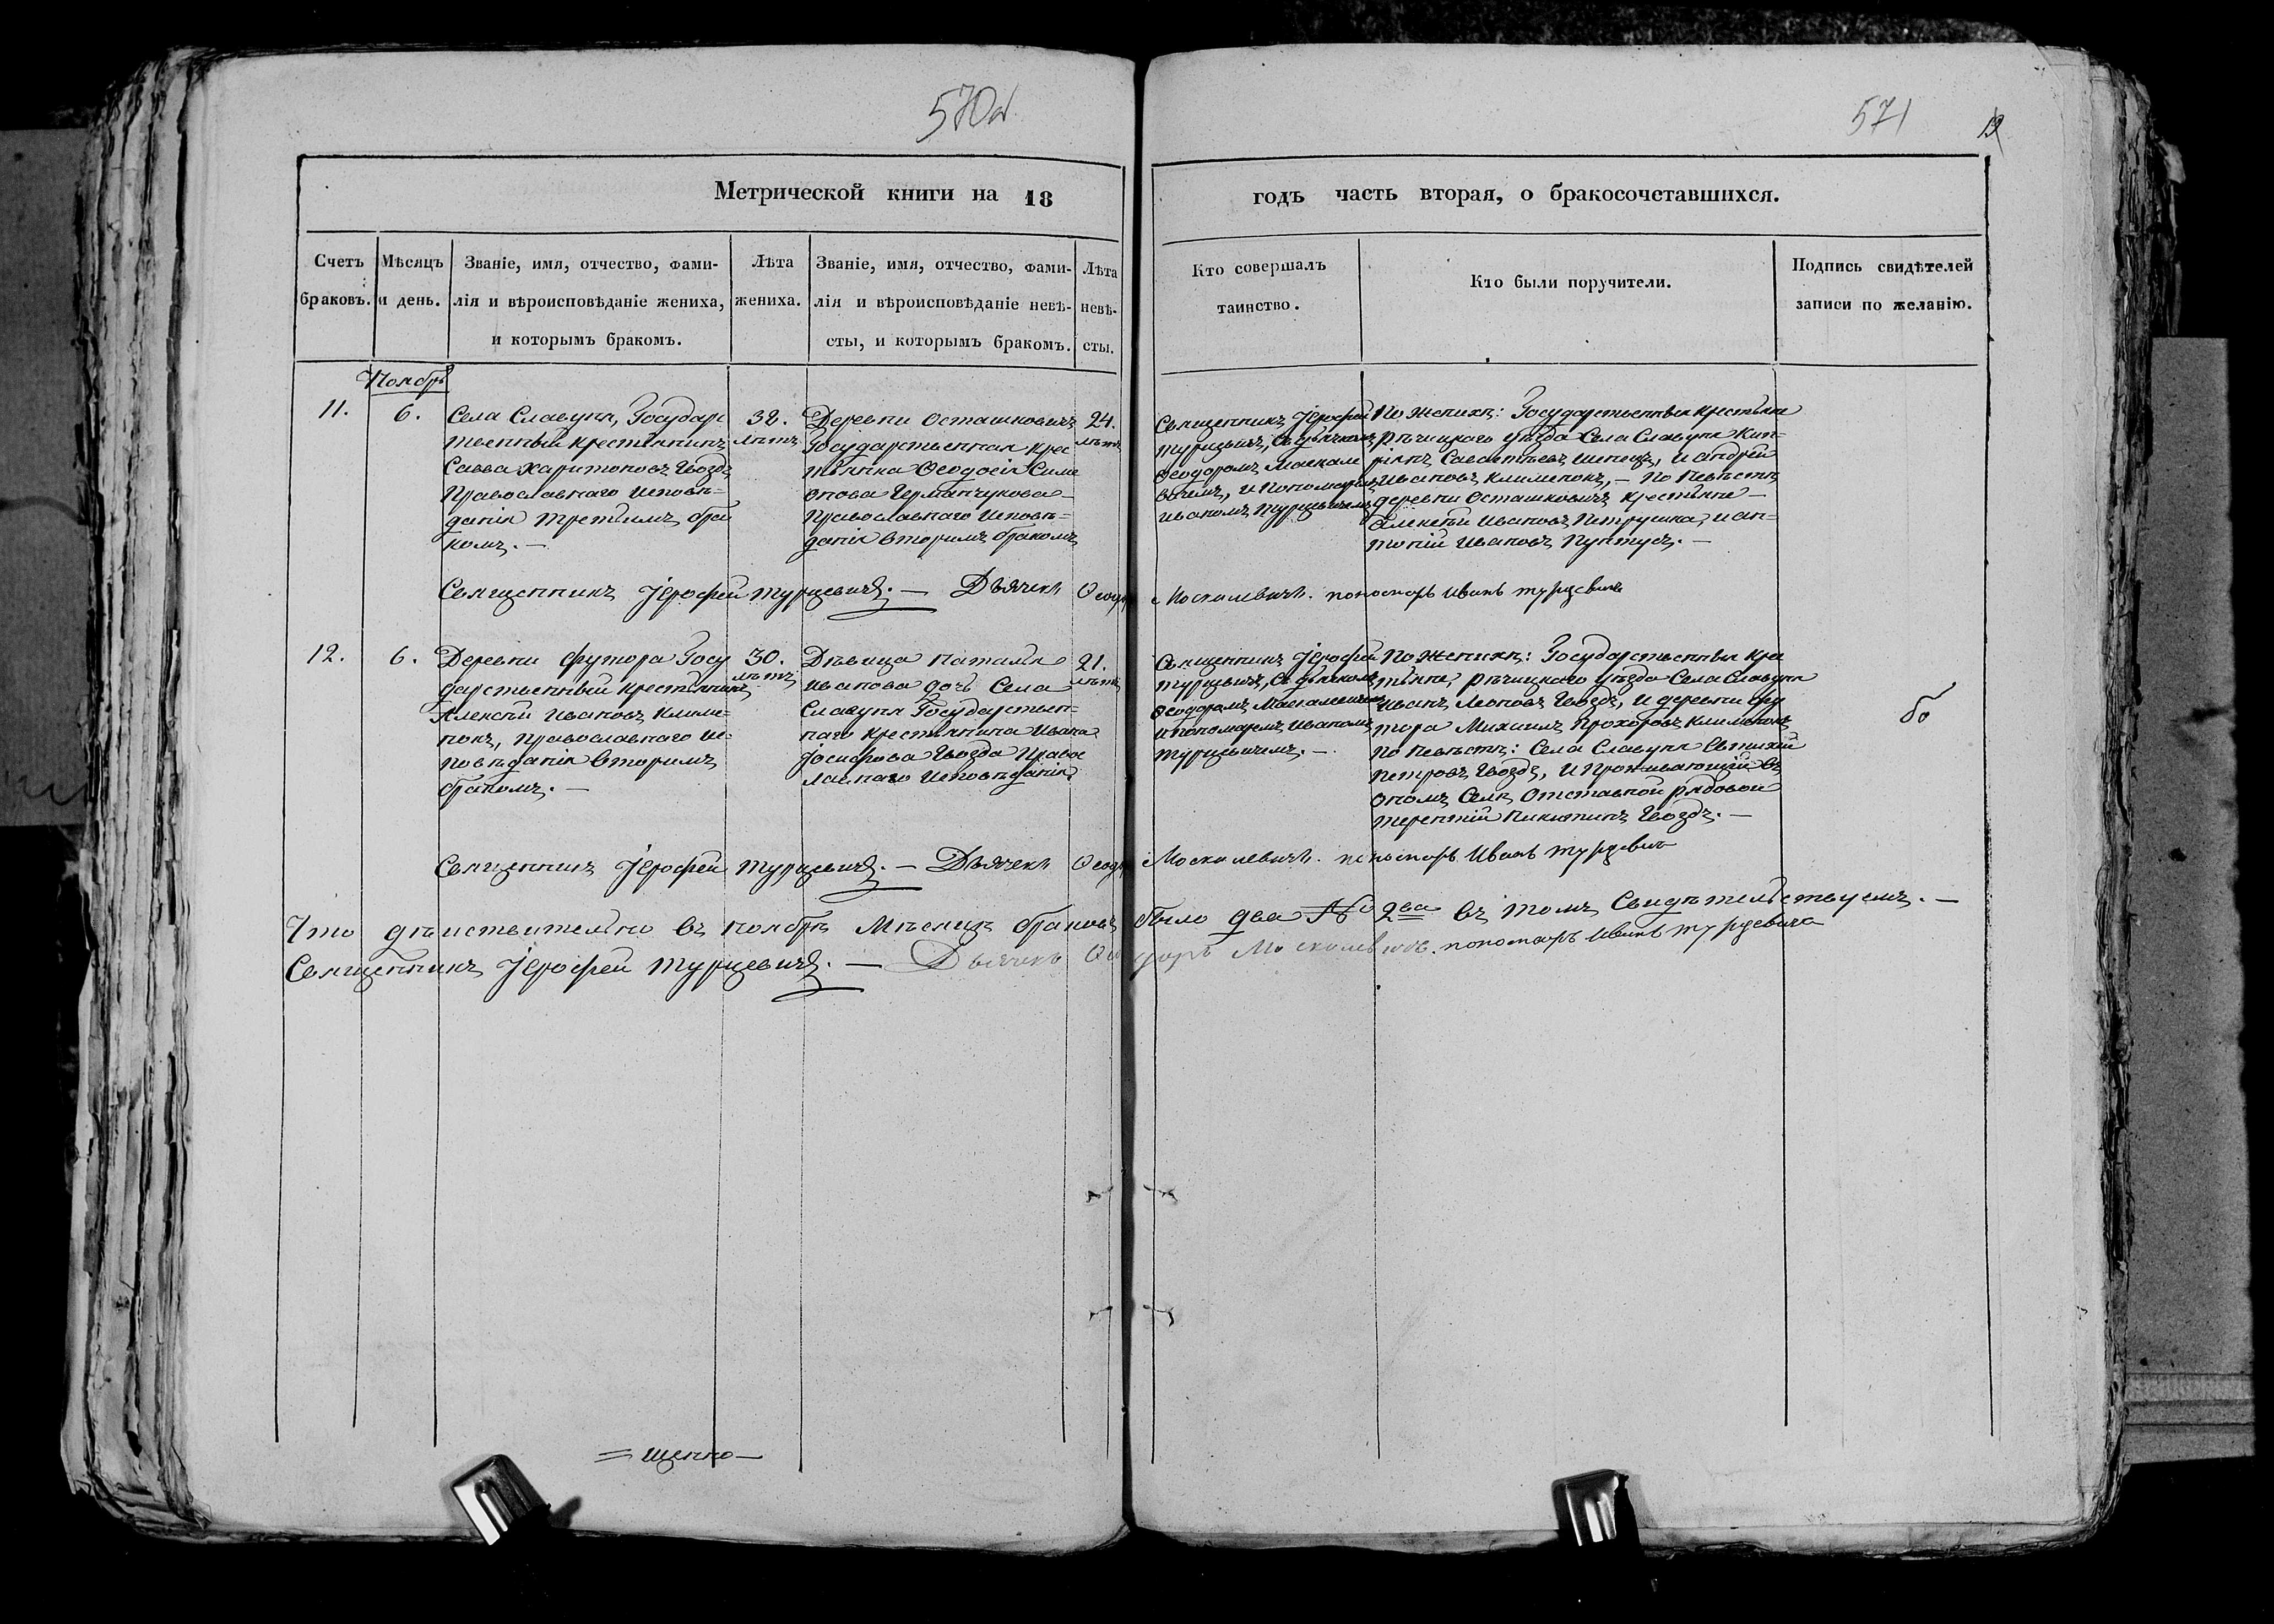 570
571
Метрической книги на 18
годъ часть вторая, о бракосочетавшихся.
Счетъ
браковъ.
Мѣсяцъ
и день.
Званіе, имя, отчество, фами-
лія и вѣроисповѣданіе жениха,
и которымъ бракомъ.
Лѣта
жениха.
Званіе, имя, отчество, фами-
лія и вѣроисповѣданіе невѣ-
сты, и которымъ бракомъ.
Лѣта
невѣ-
сты.
Кто совершалъ
таинство.
Кто были поручители.
Подпись свидѣтелей
записи по желанію.
Ноябрь
11.
6.
Села Славуня, Государс
твенный крестьянинъ
Савва Харитоновъ Гвоздь
Православнаго исповѣ=
данія третьимъ бра
комъ. —
32.
лѣтъ
Деревни Осташковичъ
Государственная крес
тьянка Ѳеодосія Симе
онова Германчукова
Православнаго исповѣ=
данія вторымъ бракомъ
24.
лѣтъ
Священникъ Іерофей
Турцевичъ, съ дьячкомъ
Ѳеодоромъ Москале
вичемъ, и Пономаремъ
Иваномъ Турцевичемъ
По Женихѣ: Государственные крестьяне
Рѣчицкаго уѣзда Села Славуня Кип=
ріянъ Савватѣевъ Шепецъ, и Андрей
Ивановъ Клименокъ, — По Невѣстѣ
деревни Осташковичъ крестьяне —
Алексѣй Ивановъ Петрушка, и Ан=
тоній Ивановъ Пунтусъ. —
Священникъ Іерофей Турцевичъ. — Дьячекъ Ѳеодоръ Москалевичъ. пономарь Иванъ Турцевичъ
12.
6.
Деревни Футора Госу
дарственный крестьянинъ
Алексѣй Ивановъ Климе=
нокъ, Православнаго ис
повѣданія вторымъ
бракомъ. —
30.
лѣтъ
Дѣвица Наталія
Иванова дочь Села
Славуня Государствен=
наго крестьянина Ивана
Іосифова Гвоздя Правос
лавнаго исповѣданія
21.
лѣтъ
Священникъ Іерофей
Турцевичъ, съ дьячкомъ
Ѳеодоромъ Москалевичемъ
и пономаремъ Иваномъ
Турцевичемъ. —
По Женихѣ: Государственные кре
стьяне, Рѣчицкаго уѣзда Села Славуня
Иванъ Леоновъ Гвоздь, и деревни Фу
тора Михаилъ Прохоровъ Климонокъ
По невѣстѣ: Села Славуня Евтихій
Петровъ Гвоздь, и Проживающій въ
ономъ Селѣ Отставной рядовой
Терентій Никитинъ Гвоздь. —
Священникъ Іерофей Турцевичъ. — Дьячекъ Ѳеодоръ Москалевичъ. пономарь Иванъ Турцевичъ
Что дѣйствительно въ Ноябрѣ Мѣсяцѣ браковъ было два № 2ва въ томъ Свидѣтельствуемъ. —
Священникъ Іерофей Турцевичъ. — Дьячекъ Ѳеодоръ Москалевичъ. пономарь Иванъ Турцевичъ
= щенно —